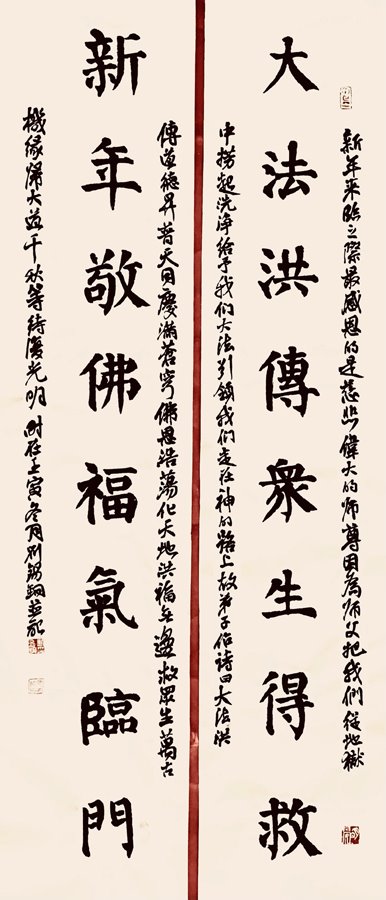 新年来臨之際最感恩的是慈悲偉大的师尊因為师父把我們從地獄
大法洪傳衆生得救
中撈起洗净给予我们大法引領我们走在神的路上故弟子作詩曰大法洪
傳道德昇普天同慶滿蒼穹佛恩浩蕩化天地洪福無邊救眾生萬古
新年敬佛福氣臨門
機缘歸大道千秋等待復光明 時在壬寅冬月刘錫铜並記